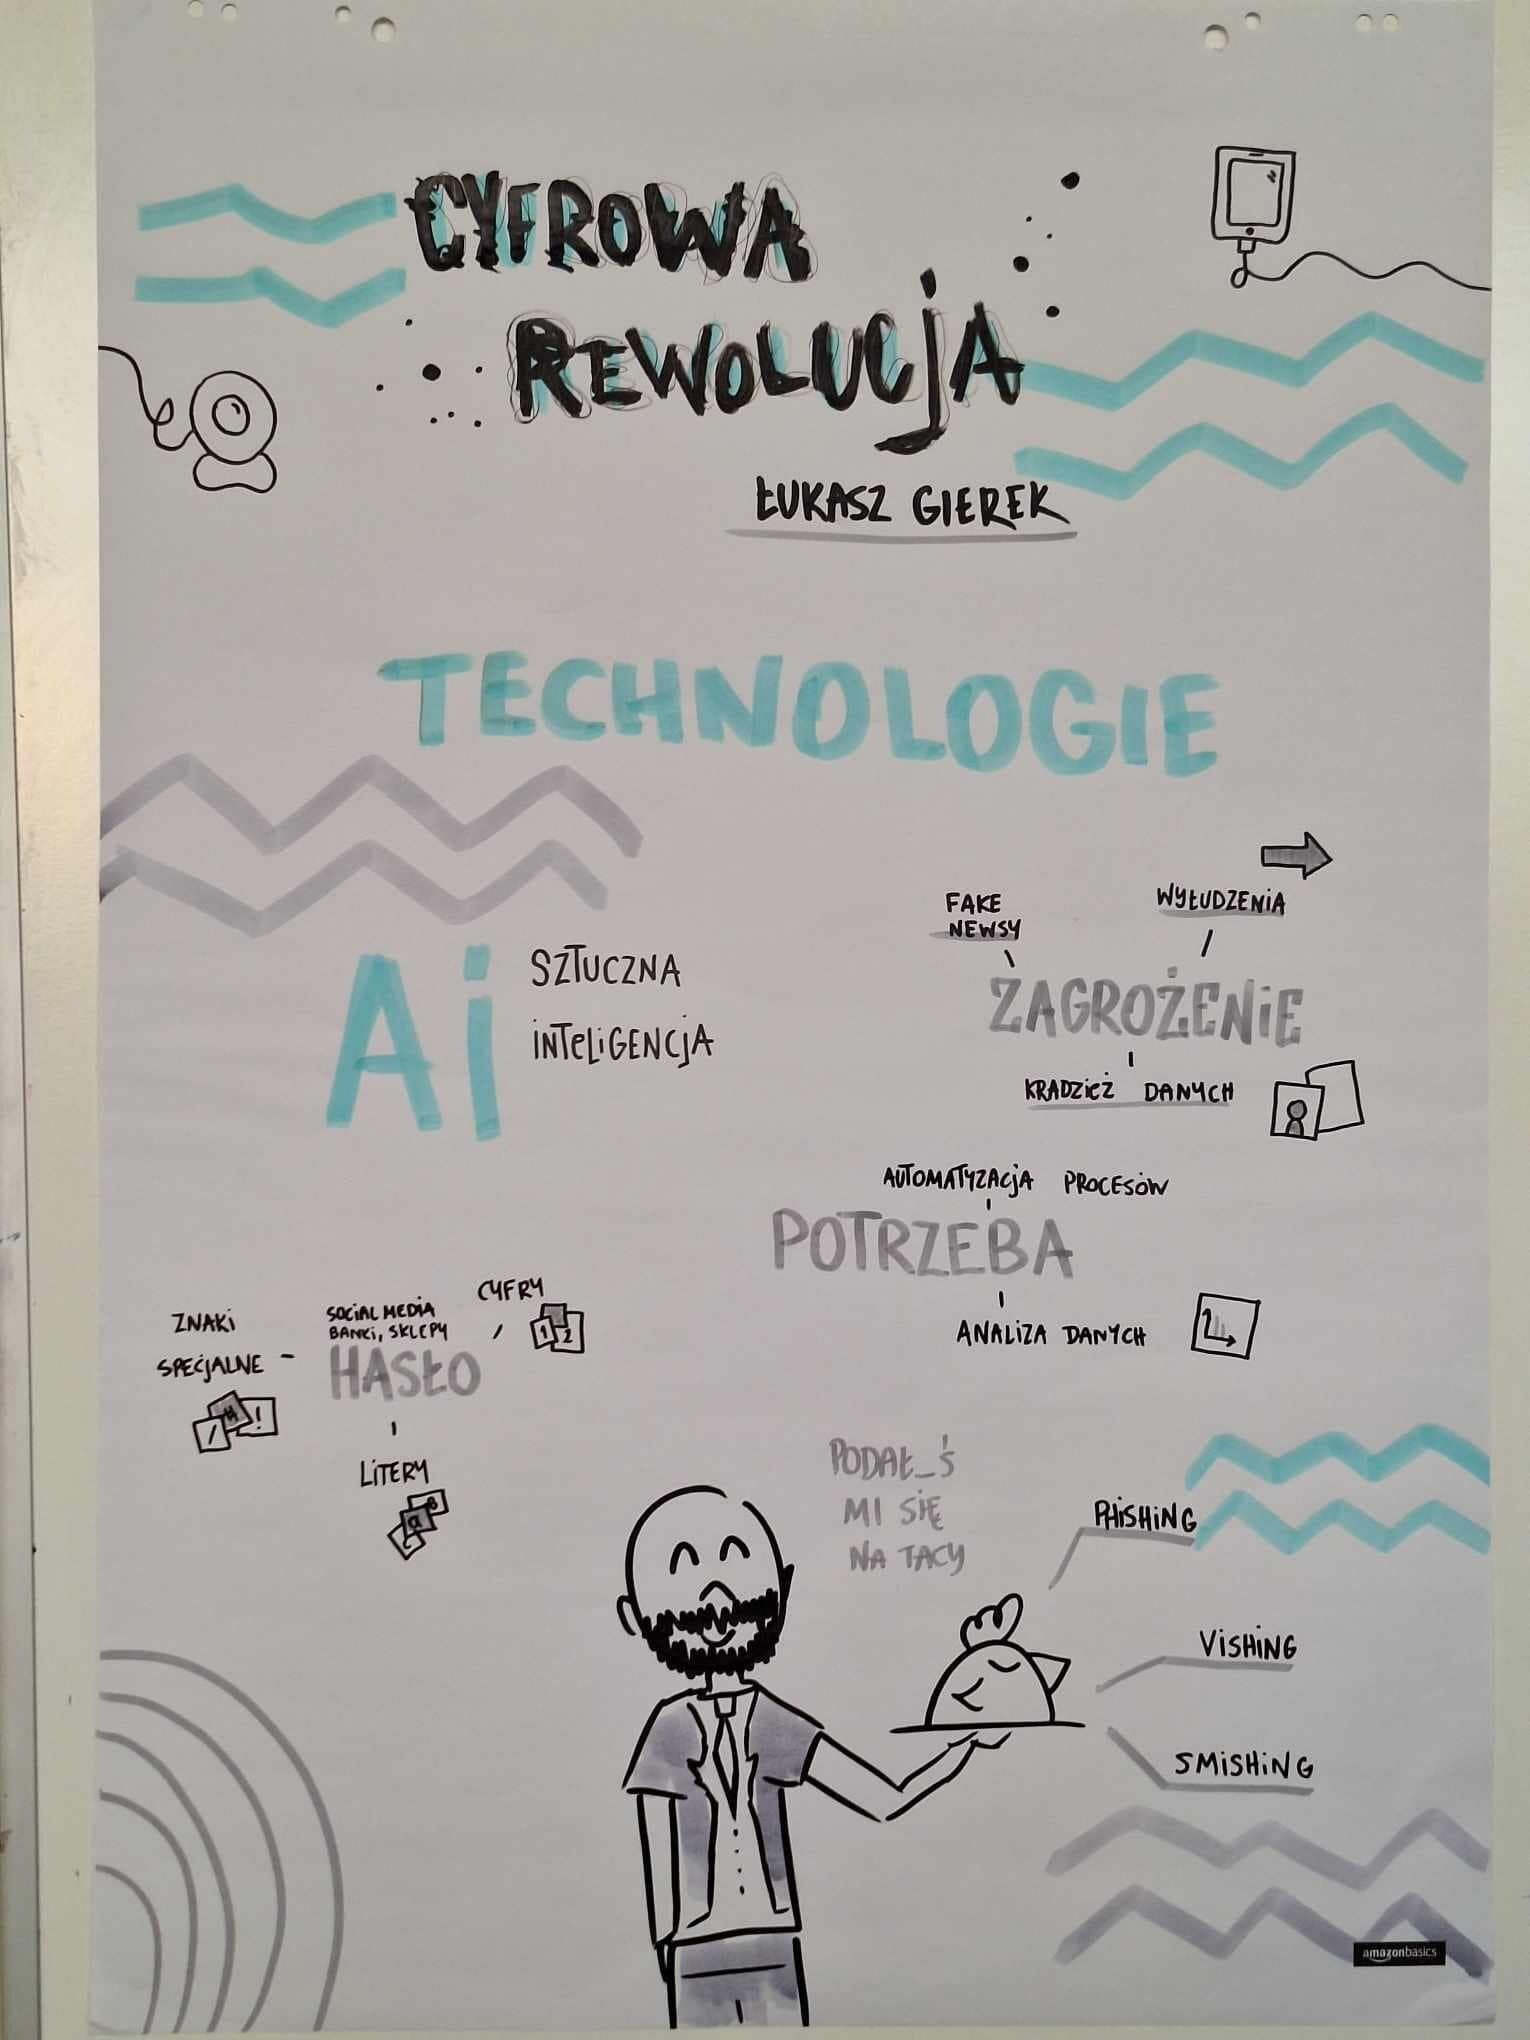 CYFROWA
REWOLUCJA
ŁUKASZ GIEREK
TECHNOLOGIE
Ai
SZTUCZNA
INTELIGENCJA
FAKE
NEWSY
WYŁUDZENIA
ZAGROŻENIE
KRADZIEŻ DANYCH
AUTOMATYZACJA PROCESÓW
POTRZEBA
ANALIZA DANYCH
ZNAKI
SPECJALNE
/ # !
SOCIAL MEDIA
BANKI, SKLEPY
HASŁO
CYFRY
1 2
LITERY
PODAŁ_Ś
MI SIĘ
NA TACY
PHISHING
VISHING
SMISHING
amazonbasics